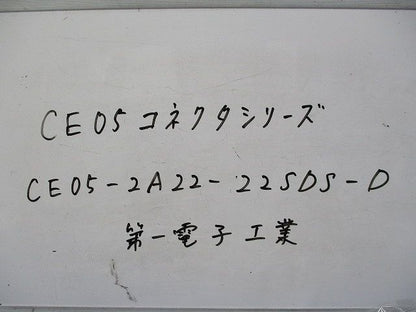 CE05コネクタシリーズ
CE05-2A22-22SDS-D
第一電子工業